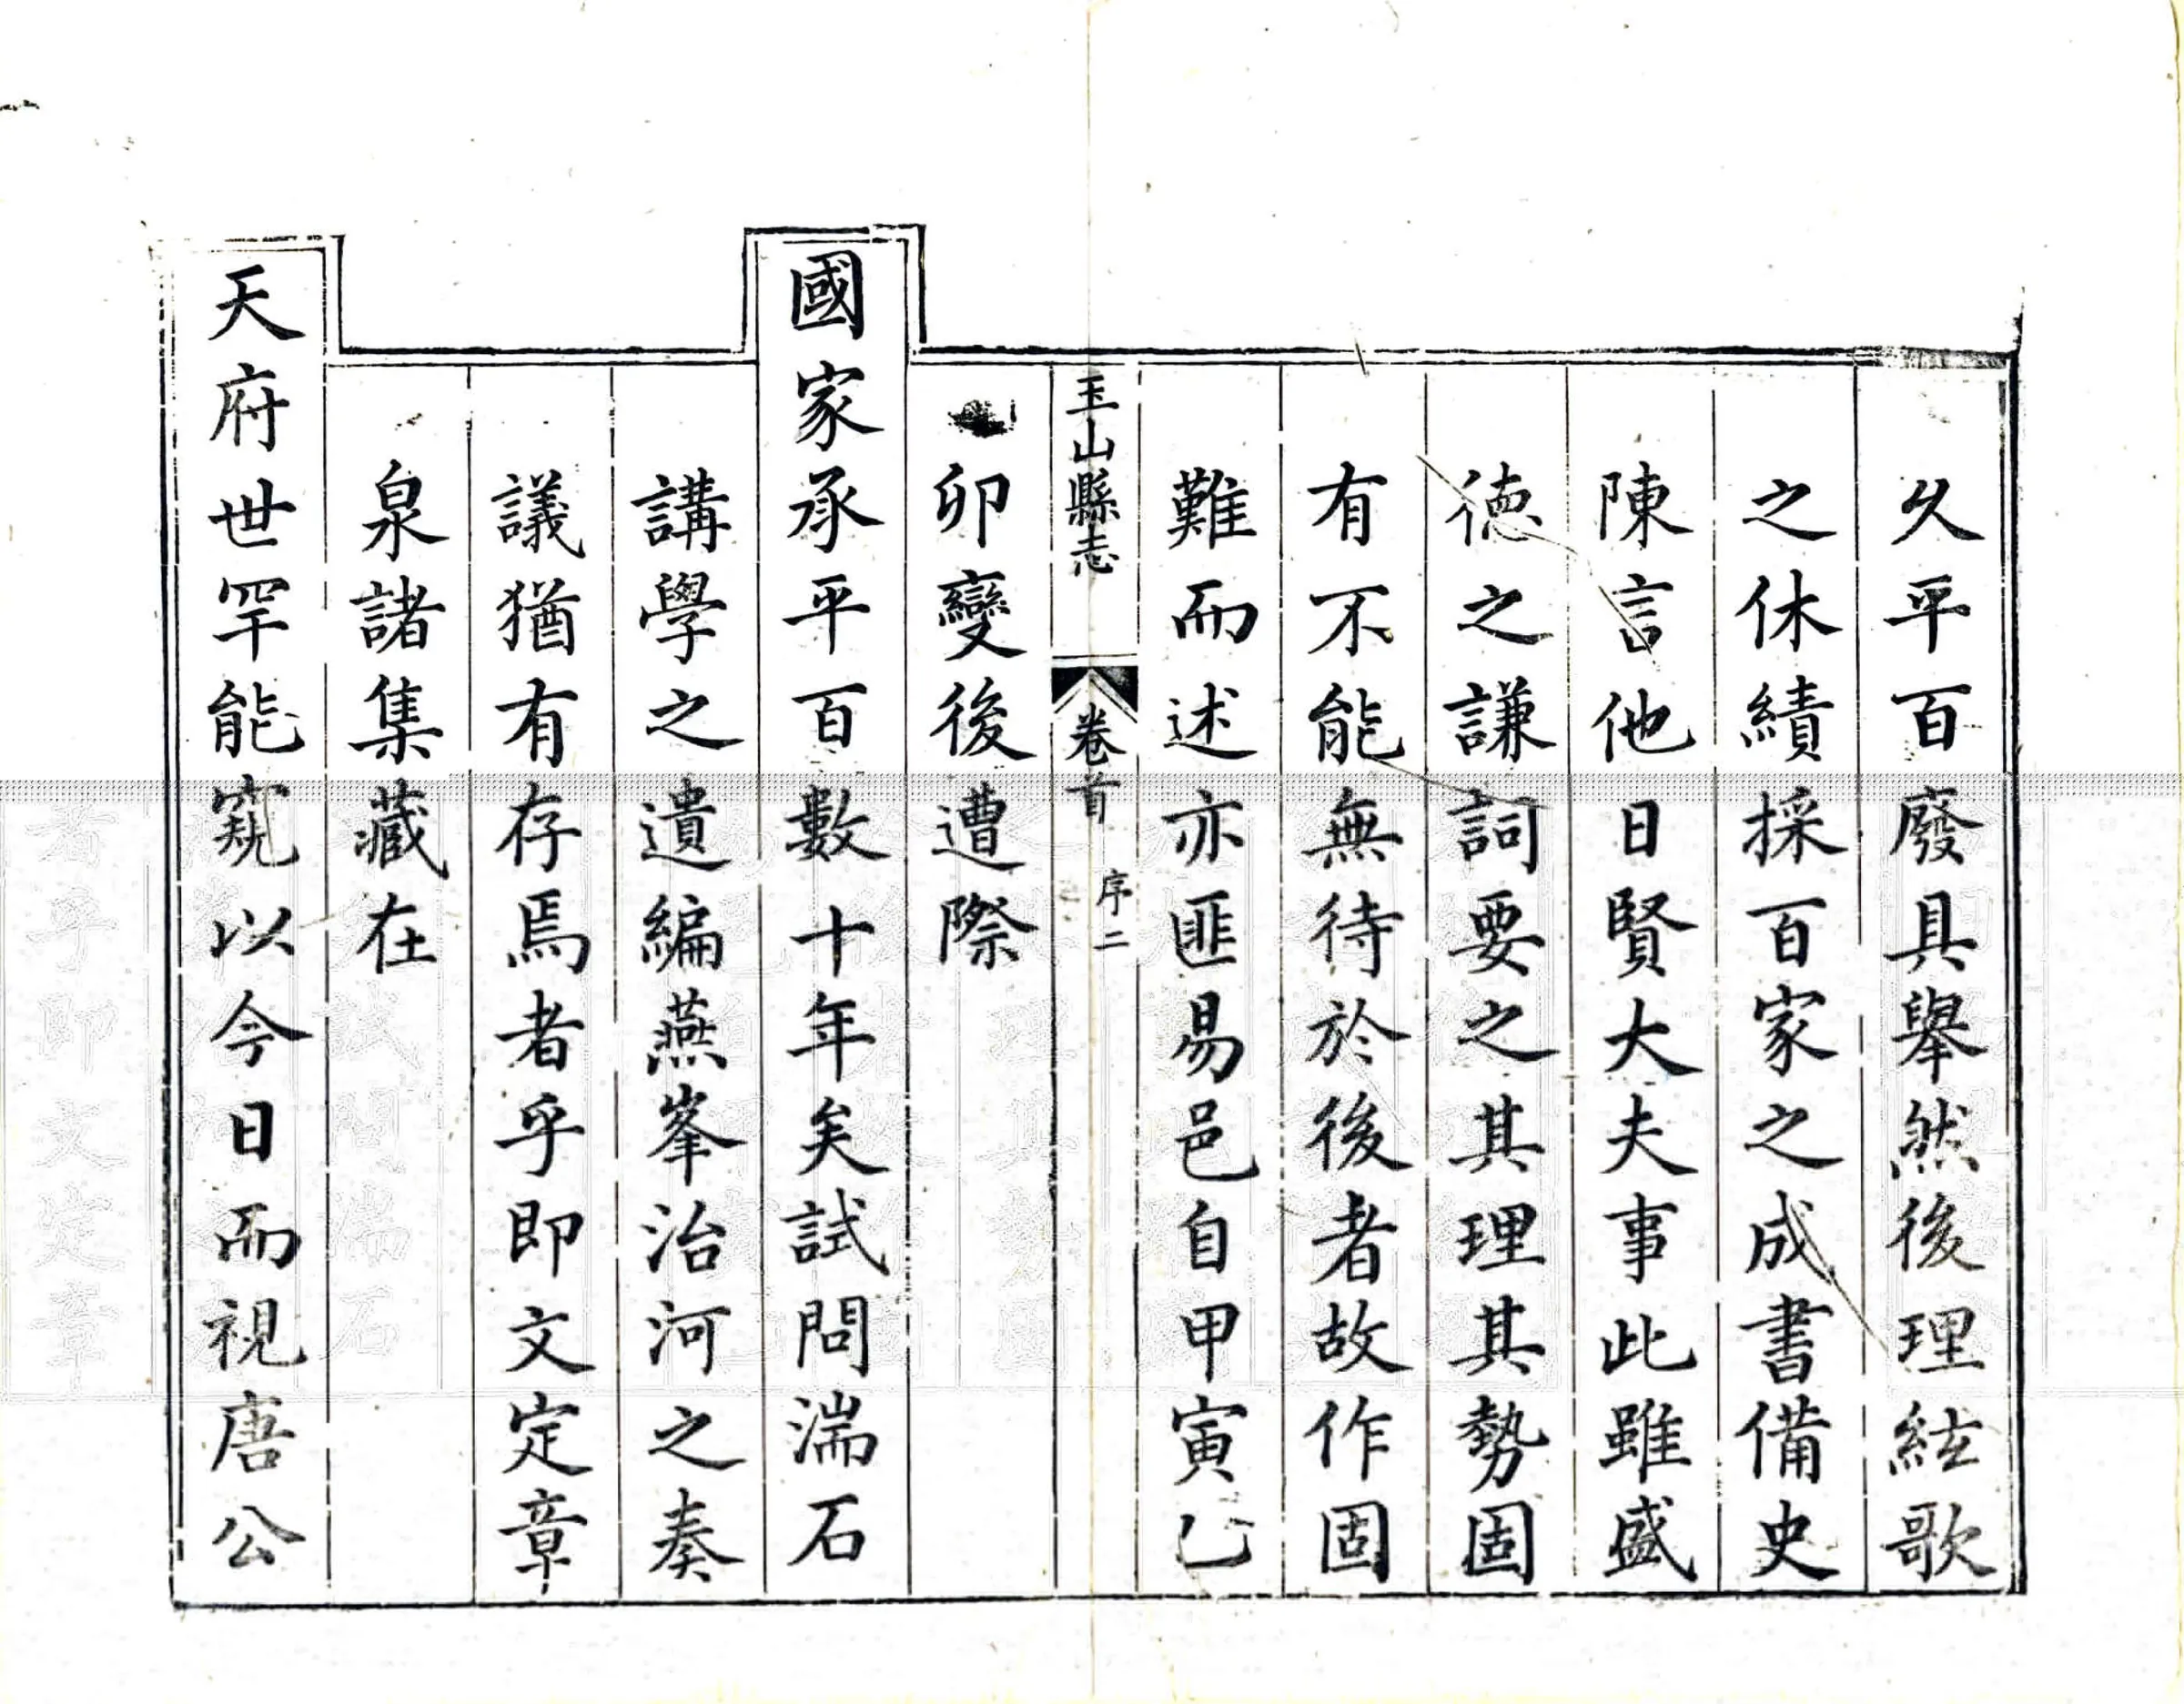 久平百廢具舉然後理絃歌
之休績採百家之成書備史
陳言他日賢大夫事此雖盛
徳之謙詞要之其理其勢固
有不能無待於後者故作固
難而述亦匪易邑自甲寅乙
玉山縣志 卷首 序二
卯變後遭際
國家承平百數十年矣試問湍石
講學之遺編燕峯治河之奏
議猶有存焉者乎即文定章
泉諸集藏在
天府世罕能窺以今日而視唐公